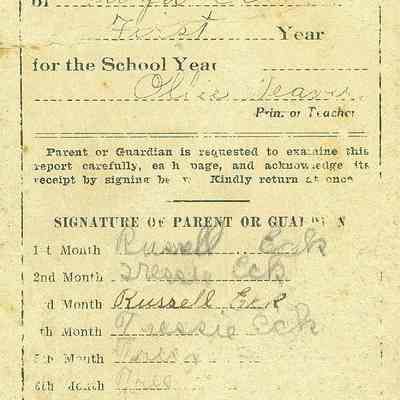 of
First Year
for the School Year
Ollie Weaver
Prin. or Teacher
Parent or Guardian is requested to examine this
report carefully, each page, and acknowledge its
receipt by signing below. Kindly return at once
SIGNATURE OF PARENT OR GUARDIAN
1st Month Russell Eck
2nd Month Tressie Eck
3rd Month Russell Eck
4th Month Tressie Eck
5th Month Tress
6th Month Tres